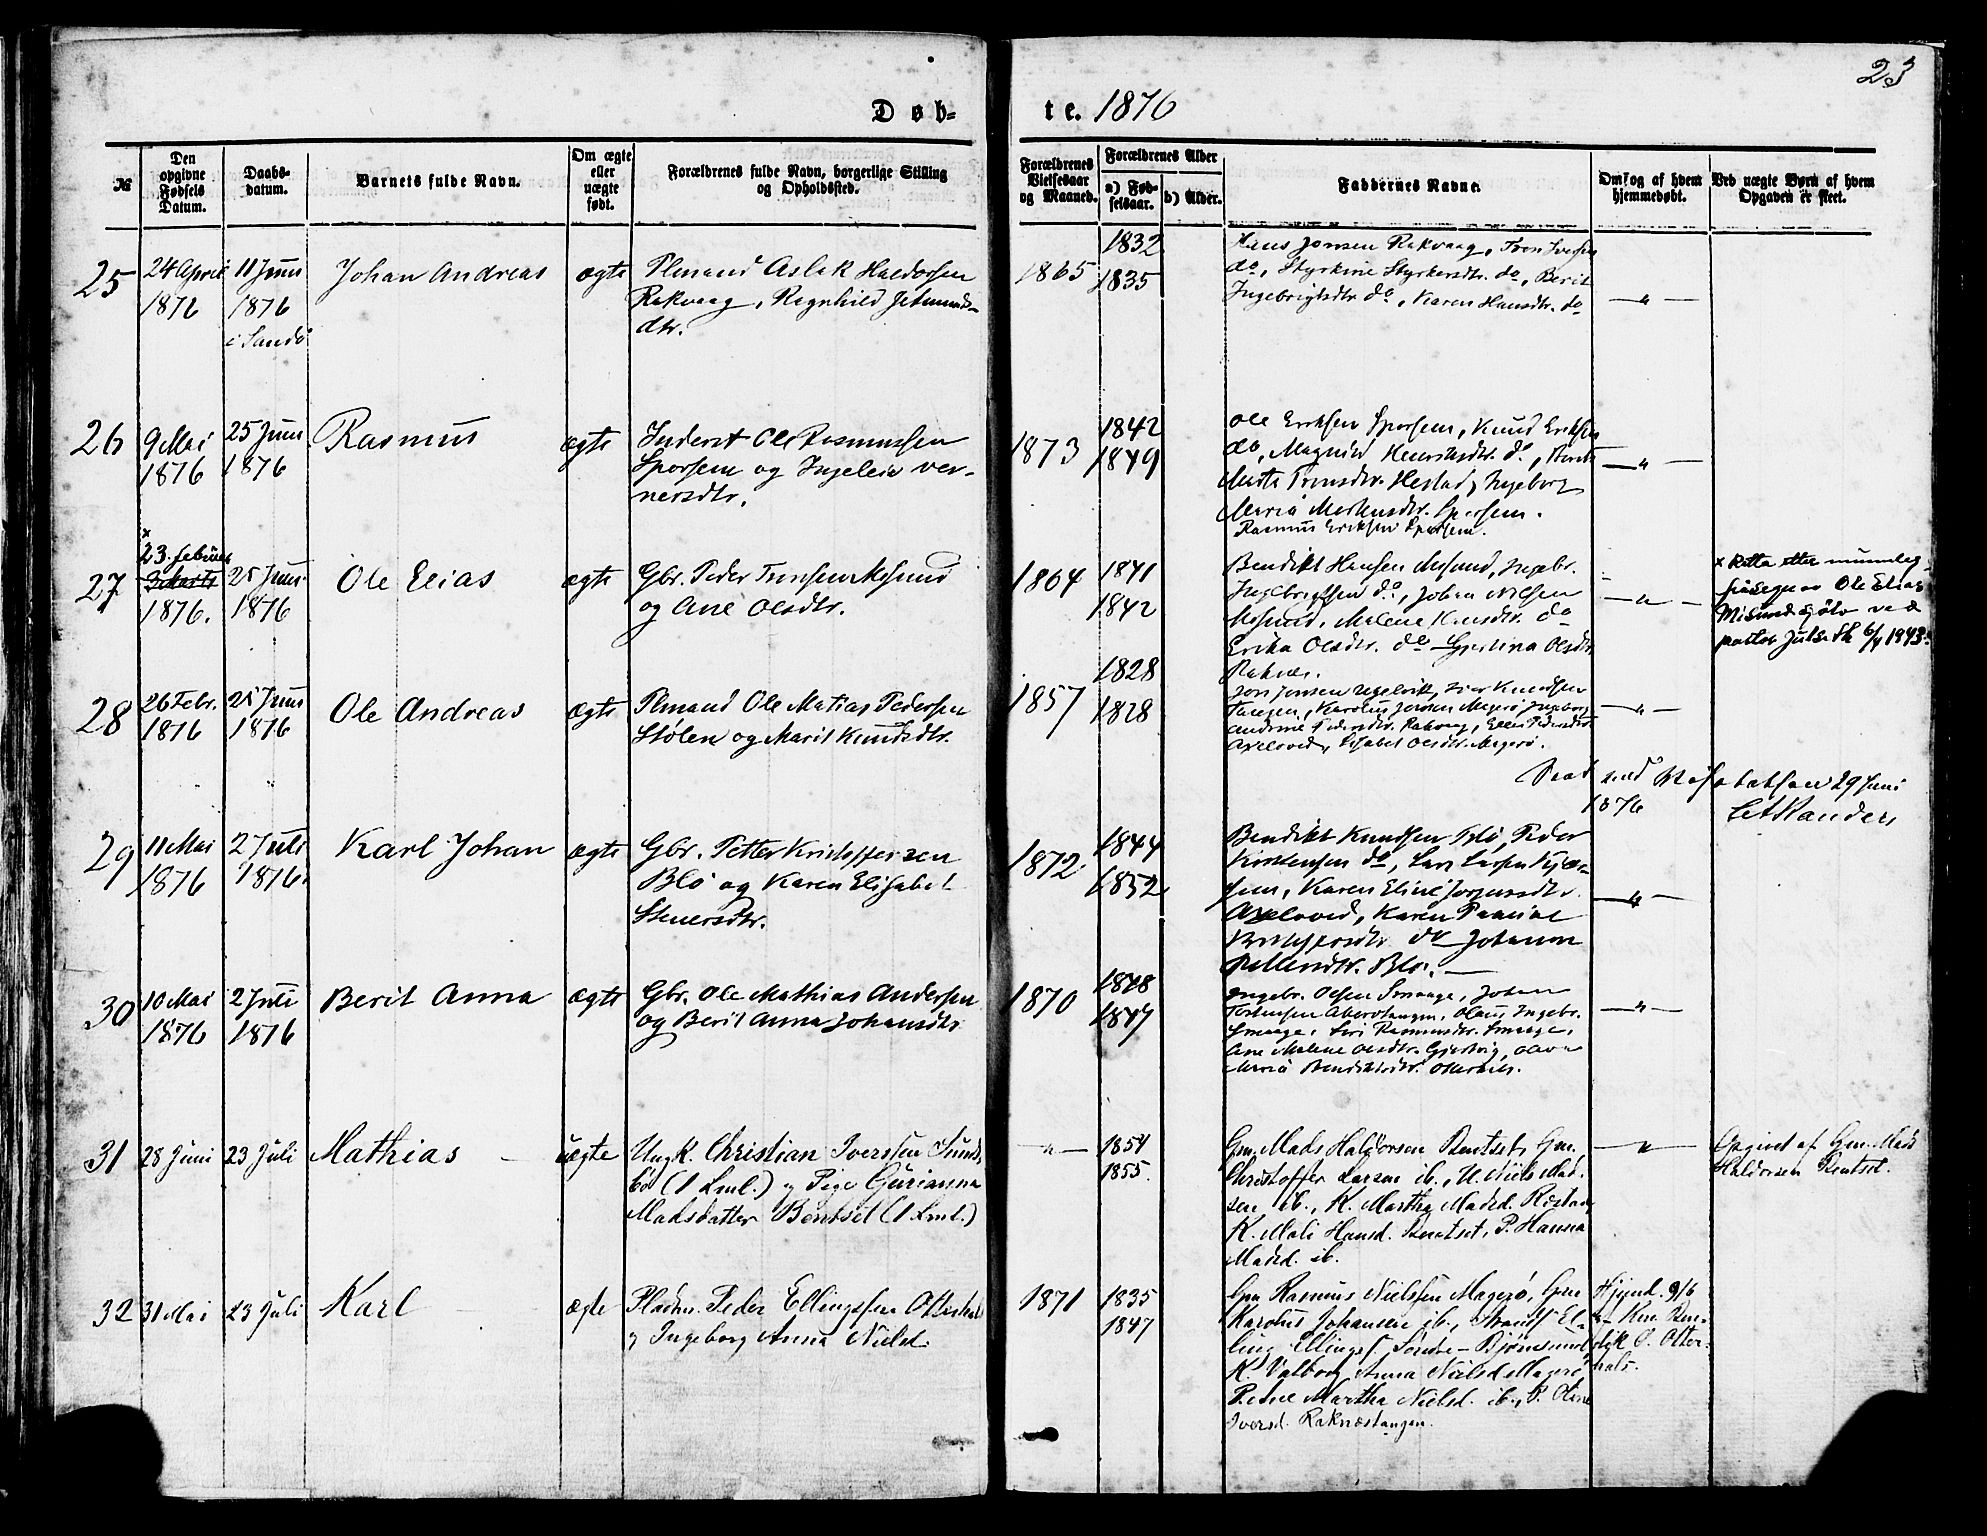 23
Døb-
te. 1876
№
Den
opgivne
Fødsels
Datum.
Daabs-
datum.
Barnets fulde Navn.
Om ægte
eller
uægte
født.
Forældrenes fulde Navn, borgerlige Stilling
og Opholdssted.
Forældrenes
Vielsesaar
og Maaned.
Forældrenes Alder
a) Fød-
selsaar.
b) Alder.
Faddernes Navne.
Om og af hvem
hjemmedøbt.
Ved uægte Børn af hvem
Opgaven er skeet.
25
24 April
1876
11 Juni
1876
i Sandø
Johan Andreas
ægte
Plmand Aslak Haldorsen
Rakvaag, Ragnhild Jetmunds-
dtr.
1865
1832
1835
Hans Jonsen Rakvaag, Tron Iversen
do, Styrkine Styrkersdtr. do, Berit
Ingebrigtsdtr do, Karen Hansdtr. do
26
9 Mai
1876
25 Juni
1876
Rasmus
ægte
Inderst Ole Rasmussen
Sporsem og Ingeleiv Ver-
nersdtr.
1873
1842
1849
Ole Eriksen Sporsem, Knud Eriksen
do, Magnild Henriksdtr. do, Berit
Marta Tronsdtr. Hestad, Ingeborg
Maria Markusdtr. Sporsem.
Rasmus Eriksen Sporsem.
27
x
23. februar
3 Marts
1876.
25 Juni
1876
Ole Elias
ægte
Gbr. Peder Tronsen Mesund
og Ane Olsdtr.
1864
1841
1842
Bendikt Hansen Mesund, Ingebr.
Ingebrigtsen do, Johan Nilsen
Mesund, Malene Knudsdtr. do
Erika Olsdtr. do Gjertina Olsdtr
Raknes.
x Retta etter munnleg
fråsegn av Ole Elias
Misund sjølv ved
pastor Julseth 6/4 1943.
28
26 Febr.
1876
25 Juni
1876
Ole Andreas
ægte
Plmand Ole Matias Pedersen
Stølen og Marit Knudsdtr.
1857
1828
1828
Jon Jonsen Ugelvik, Iver Knudsen
Tangen, Karolus Jonsen Magerø, Ingeborg
Andrine Pedersdtr. Rakvaag, Ellen Pedersdtr
Axelvold, Lisabet Olsdtr. Magerø.
1876
29 Juni
29
11 Mai
1876
2 Juli
1876.
Karl Johan
ægte
Gbr. Petter Kristoffersen
Blø og Karen Elisabet
Steuersdtr.
1872
1844
1852
Bendikt Knudsen Blø, Peder
Kristensen do, Lars Larsen Kjør-
sem, Karen Eline Jørgensdtr.
Axelvold, Karen Pauline
Kristoffersdtr do Johanna
Pettersdtr. Blø.
30
10 Mai
1876
2 Juli
1876
Berit Anna
ægte
Gbr. Ole Mathias Andersen
og Berit Anna Johansdtr.
1870
1848
1847
Ingebr. Olsen Smaage, Johan
Torstensen Abervstangen, Olaus Ingebr.
Smaage, Siri Rasmusdtr. Smaage,
Ane Malene Olsdtr. Gjertvig, Olava
Maria Bendiktsdtr. Otternes.
31
28 Juni
23 Juli
Mathias
uægte
Ungk. Christian Iversen Sunds-
bø (1 Lml.) og Pige Gurianna
Madsdatter Bentset (1 Lml.)
1854
1855.
Gm. Mads Haldorsen Bentset, Gm.
Christoffer Larsen ib., U. Niels Mad-
sen ib., K. Martha Madsd. Røstad
K. Mali Hansd. Bentset, P. Hanna
Madsd. ib.
Opgivet af Gm. Mads
Haldorsen Bentset.
32
31 Mai
23 Juli
Karl
ægte
Pladsm. Peder Ellingsen Otterhals
og Ingeborg Anna Nielsd.
1871
1835
1847
Gm Rasmus Nielsen Magerø, Gm
Karolus Johansen ib., Strands. El-
ling Ellingsf. Søndre-Bjørnsund,
K. Valborg Anna Nielsd Magerø,
P. Ane Martha Nielsd. ib., P. Oline
Iversd. Raknestangen.
Hjemd. 9/6
af Km. Ben-
dik O. Otter-
hals.